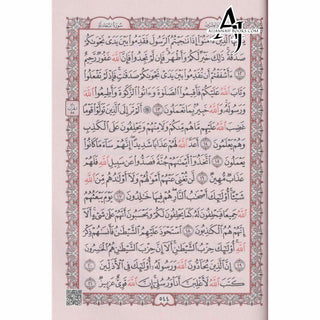 سُورَةُ المُجَادلة
AJ
ALJANNAH-BOOKS.COM
يَٰٓأَيُّهَا ٱلَّذِينَ ءَامَنُوٓاْ إِذَا نَٰجَيۡتُمُ ٱلرَّسُولَ فَقَدِّمُواْ بَيۡنَ يَدَيۡ نَجۡوَىٰكُمۡ
صَدَقَةٗۚ ذَٰلِكَ خَيۡرٞ لَّكُمۡ وَأَطۡهَرُۚ فَإِن لَّمۡ تَجِدُواْ فَإِنَّ ٱللَّهَ غَفُورٞ رَّحِيمٌ
١٢ ءَأَشۡفَقۡتُمۡ أَن تُقَدِّمُواْ بَيۡنَ يَدَيۡ نَجۡوَىٰكُمۡ صَدَقَٰتٖۚ فَإِذۡ لَمۡ تَفۡعَلُواْ
وَتَابَ ٱللَّهُ عَلَيۡكُمۡ فَأَقِيمُواْ ٱلصَّلَوٰةَ وَءَاتُواْ ٱلزَّكَوٰةَ وَأَطِيعُواْ ٱللَّهَ
وَرَسُولَهُۥۚ وَٱللَّهُ خَبِيرُۢ بِمَا تَعۡمَلُونَ ١٣ أَلَمۡ تَرَ إِلَى ٱلَّذِينَ تَوَلَّوۡاْ قَوۡمًا
غَضِبَ ٱللَّهُ عَلَيۡهِم مَّا هُم مِّنكُمۡ وَلَا مِنۡهُمۡ وَيَحۡلِفُونَ عَلَى ٱلۡكَذِبِ وَهُمۡ
يَعۡلَمُونَ ١٤ أَعَدَّ ٱللَّهُ لَهُمۡ عَذَابٗا شَدِيدًاۖ إِنَّهُمۡ سَآءَ مَا كَانُواْ
يَعۡمَلُونَ ١٥ ٱتَّخَذُوٓاْ أَيۡمَٰنَهُمۡ جُنَّةٗ فَصَدُّواْ عَن سَبِيلِ ٱللَّهِ فَلَهُمۡ
عَذَابٞ مُّهِينٞ ١٦ لَّن تُغۡنِيَ عَنۡهُمۡ أَمۡوَٰلُهُمۡ وَلَآ أَوۡلَٰدُهُم مِّنَ ٱللَّهِ
شَيۡـًٔاۚ أُوْلَٰٓئِكَ أَصۡحَٰبُ ٱلنَّارِۖ هُمۡ فِيهَا خَٰلِدُونَ ١٧ يَوۡمَ يَبۡعَثُهُمُ
ٱللَّهُ جَمِيعٗا فَيَحۡلِفُونَ لَهُۥ كَمَا يَحۡلِفُونَ لَكُمۡ وَيَحۡسَبُونَ أَنَّهُمۡ عَلَىٰ شَيۡءٍۚ أَلَآ
إِنَّهُمۡ هُمُ ٱلۡكَٰذِبُونَ ١٨ ٱسۡتَحۡوَذَ عَلَيۡهِمُ ٱلشَّيۡطَٰنُ فَأَنسَىٰهُمۡ ذِكۡرَ
ٱللَّهِۚ أُوْلَٰٓئِكَ حِزۡبُ ٱلشَّيۡطَٰنِۚ أَلَآ إِنَّ حِزۡبَ ٱلشَّيۡطَٰنِ هُمُ ٱلۡخَٰسِرُونَ
١٩ إِنَّ ٱلَّذِينَ يُحَآدُّونَ ٱللَّهَ وَرَسُولَهُۥٓ أُوْلَٰٓئِكَ فِي ٱلۡأَذَلِّينَ ٢٠
كَتَبَ ٱللَّهُ لَأَغۡلِبَنَّ أَنَا۠ وَرُسُلِيٓۚ إِنَّ ٱللَّهَ قَوِيٌّ عَزِيزٞ ٢١
٥٤٤